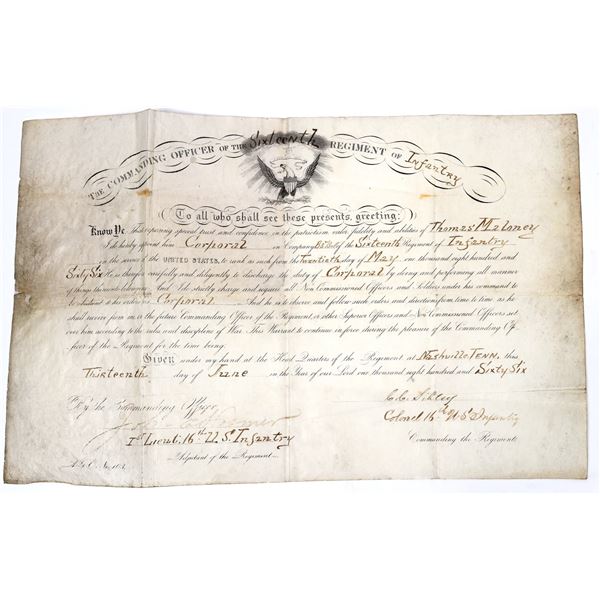 THE COMMANDING OFFICER OF THE Sixteenth REGIMENT OF Infantry
To all who shall see these presents, greeting:
Know Ye, that reposing special trust and confidence in the patriotism, valor, fidelity and abilities of Thomas Maloney
I do hereby appoint him Corporal in Company of the Sixteenth Regiment of Infantry
in the service of the UNITED STATES, to rank as such from the Twentieth day of May one thousand eight hundred and
Sixty Six He is therefore carefully and diligently to discharge the duty of Corporal by doing and performing all manner
of things thereunto belonging. And I do strictly charge and require all Non-Commissioned Officers and Soldiers under his command to
be obedient to his orders as Corporal And he is to observe and follow such orders and directions from time to time, as he
shall receive from me, or the future Commanding Officer of the Regiment, or other Superior Officers and Non-Commissioned Officers set
over him, according to the rules and discipline of War. This Warrant to continue in force during the pleasure of the Commanding Of-
ficer of the Regiment for the time being.
Given under my hand at the Head Quarters of the Regiment at Nashville Tenn. this
Thirteenth day of June in the Year of our Lord one thousand eight hundred and Sixty Six
By the Commanding Officer,
C.C. Sibley
Colonel 16th U.S. Infantry
1st Lieut. 16th U.S. Infantry
Commanding the Regiment.
Adjutant of the Regiment.
A.G.O. No.